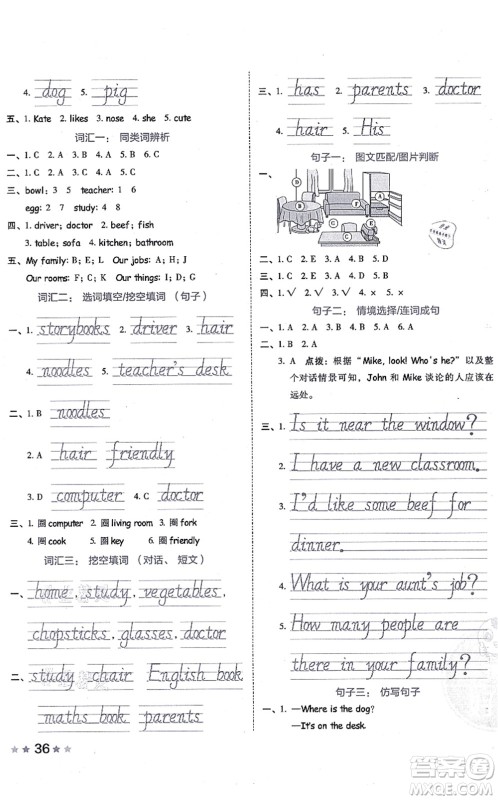 4. dog 5. pig
五、1. Kate 2. likes 3. nose 4. she 5. cute
词汇一： 同类词辨析
一、1. C 2. A 3. B 4. A 5. C
二、1. C 2. A 3. B 4. A 5. B
三、bowl: 3 5 teacher: 1 6
egg: 2 7 study: 4 8
四、1. driver; doctor 2. beef; fish
3. table; sofa 4. kitchen; bathroom
五、My family: re; L Our jobs: a; H
词汇二： 选词填空/挖空填词 （句子）
一、1. storybooks 2. driver 3. hair
4. noodles 5. teacher's desk
二、1. B noodles
2. A hair friendly
3. D computer 4. C doctor
三、1. 圈 computer 2. 圈 living room 3. 圈 fork
4. 圈 cook 5. 圈 key 6. 圈 friendly
词汇三： 挖空填词 （对话、短文）
一、home. study. vegetables.
chopsticks. glasses. doctor
二、study chair English book
maths book parents
36
三、1. has 2. parents 3. doctor
4. hair 5. His
句子一： 图文匹配/图片判断
一、
二、1. C 2. D 3. A 4. B 5. E
三、1. B 2. A 3. A 4. B 5. A
四、1. √ 2. √ 3. √ 4. × 5. ×
句子二： 情境选择/连词成句
3. A 点拨：根据 “Mike, look! Who's he?” 以及整
个对话情景可知，John 和 Mike 谈论的人应该在
远处。
三、1. Is it near the window?
2. I have a new classroom.
3. I'd like some beef for
dinner.
4. What is your aunt's job?
5. How many people are
there in your family?
句子三： 仿写句子
一、1. —Where is the dog?
—It's on the desk.